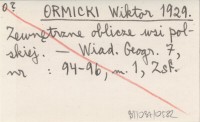 ORMICKI Wiktor 1929.
Zewnętrzne oblicze wsi pol-
skiej. — Wiad. Geogr. 7,
nr : 94-96, m. 1, Zsf.